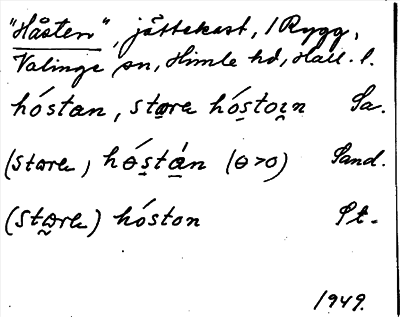 "Håsten", jättekast, i Rygg,
Valinge sn, Himle hd, Hall. l.
hóstan, stɑre hóstoın Sa.
(stɑre, hɵ́stán (ɵ>o) Sand.
(stɑre) hóston St.
1949.